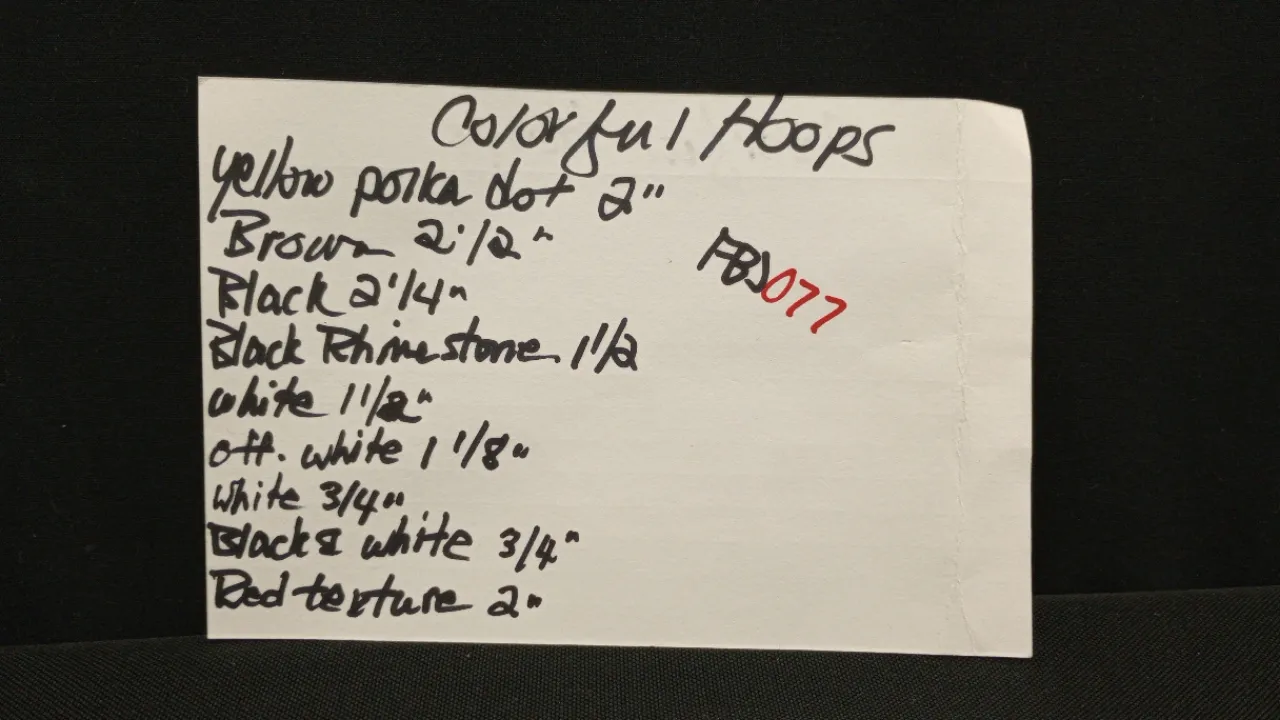 Colorful Hoops
yellow polka dot 2"
Brown 2 1/2"
FBJ077
Black 2 1/4"
Black Rhinestone 1 1/2
white 1 1/2"
off. white 1 1/8"
white 3/4"
Black & white 3/4"
Red texture 2"